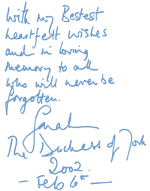 With my Bestest
heartfelt wishes
and in loving
memory to all
who will never be
forgotten.
Sarah
The Duchess of York
2002.
- Feb 6th -